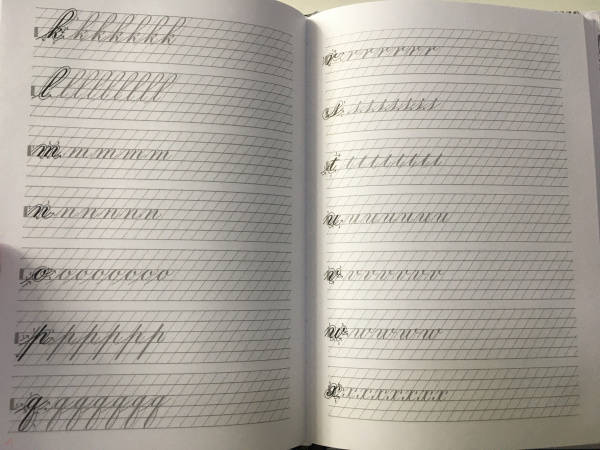 k kkkkkkk
l llllllll
m mmmm
n nnnnn
o ooooooo
p pppppp
q qqqqqq
r rrrrrrr
s sssssss
t ttttttt
u uuuuuu
v vvvvvv
w wwwww
x xxxxxxx